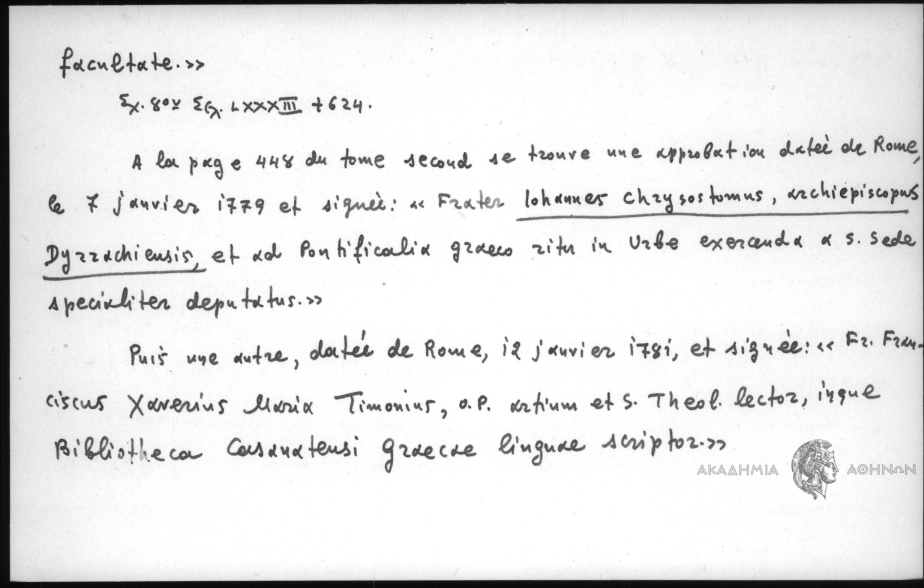 facultate.»
Σχ. 8ον Σελ. LXXXIII + 624.
A la page 448 du tome second se trouve une approbation datée de Rome,
le 7 janvier 1779 et signée: « Frater Iohannes Chrysostomus, archiepiscopus
Dyrrachiensis, et ad Pontificalia graeco ritu in Urbe exercenda a S. Sede
specialiter deputatus.»
Puis une autre, datée de Rome, 12 janvier 1781, et signée: « Fr. Fran-
ciscus Xaverius Maria Timonius, O.P. artium et S. Theol. lector, inque
Bibliotheca Casanatensi Graecae linguae scriptor.»
ΑΚΑΔΗΜΙΑ ΑΘΗΝΩΝ